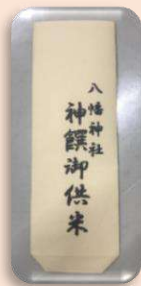 八幡神社
神饌御供米